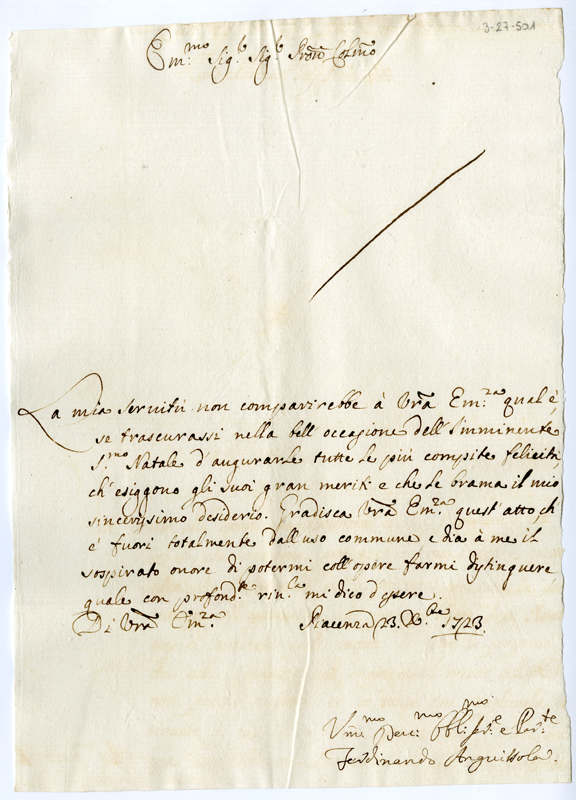 3-27-501
Em:mo Sig:e Sig:e Pron Colmo
La mia seruitù non comparirebbe à Vra Em:za qual è,
se trascurassi nella bell occasione dell'Imminente
S:mo Natale d'augurarLe tutte Le più compite felicità,
ch'esiggono gli suoi gran meriti e che Le brama il mio
sincerissimo desiderio. Gradisca Vra Em:za quest'atto, ch
è fuori totalmente dall'uso commune e dia à me il
sospirato onore di potermi coll'opere farmi distinguere,
quale con profond:te riu:za mi dico d'essere.
Di Vra Em:za Piacenza 23. Xbre 1723.
Vmi:mo Deu:mo Obbl:mo ser:e e Par:te
Ferdinando Anguissola.